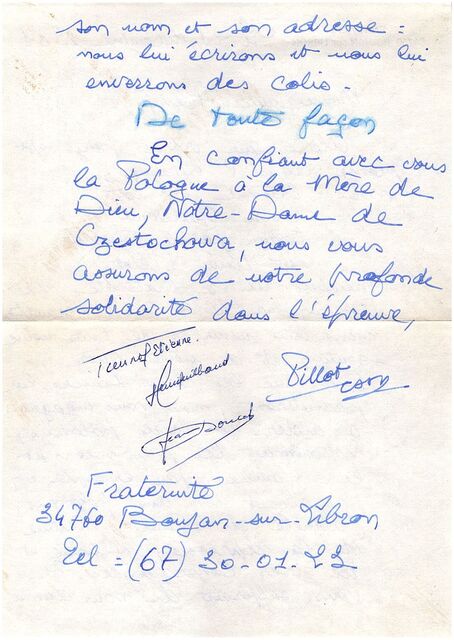 son nom et son adresse :
nous lui écrirons et nous lui
enverrons des colis.
De toute façon
En confiant avec vous
la Pologne à la Mère de
Dieu, Notre-Dame de
Czestochowa, nous vous
assurons de notre profonde
solidarité dans l'épreuve,
Pillot
Fraternité
34760 Boujan-sur-Libron
Tel = (67) 30-01-22